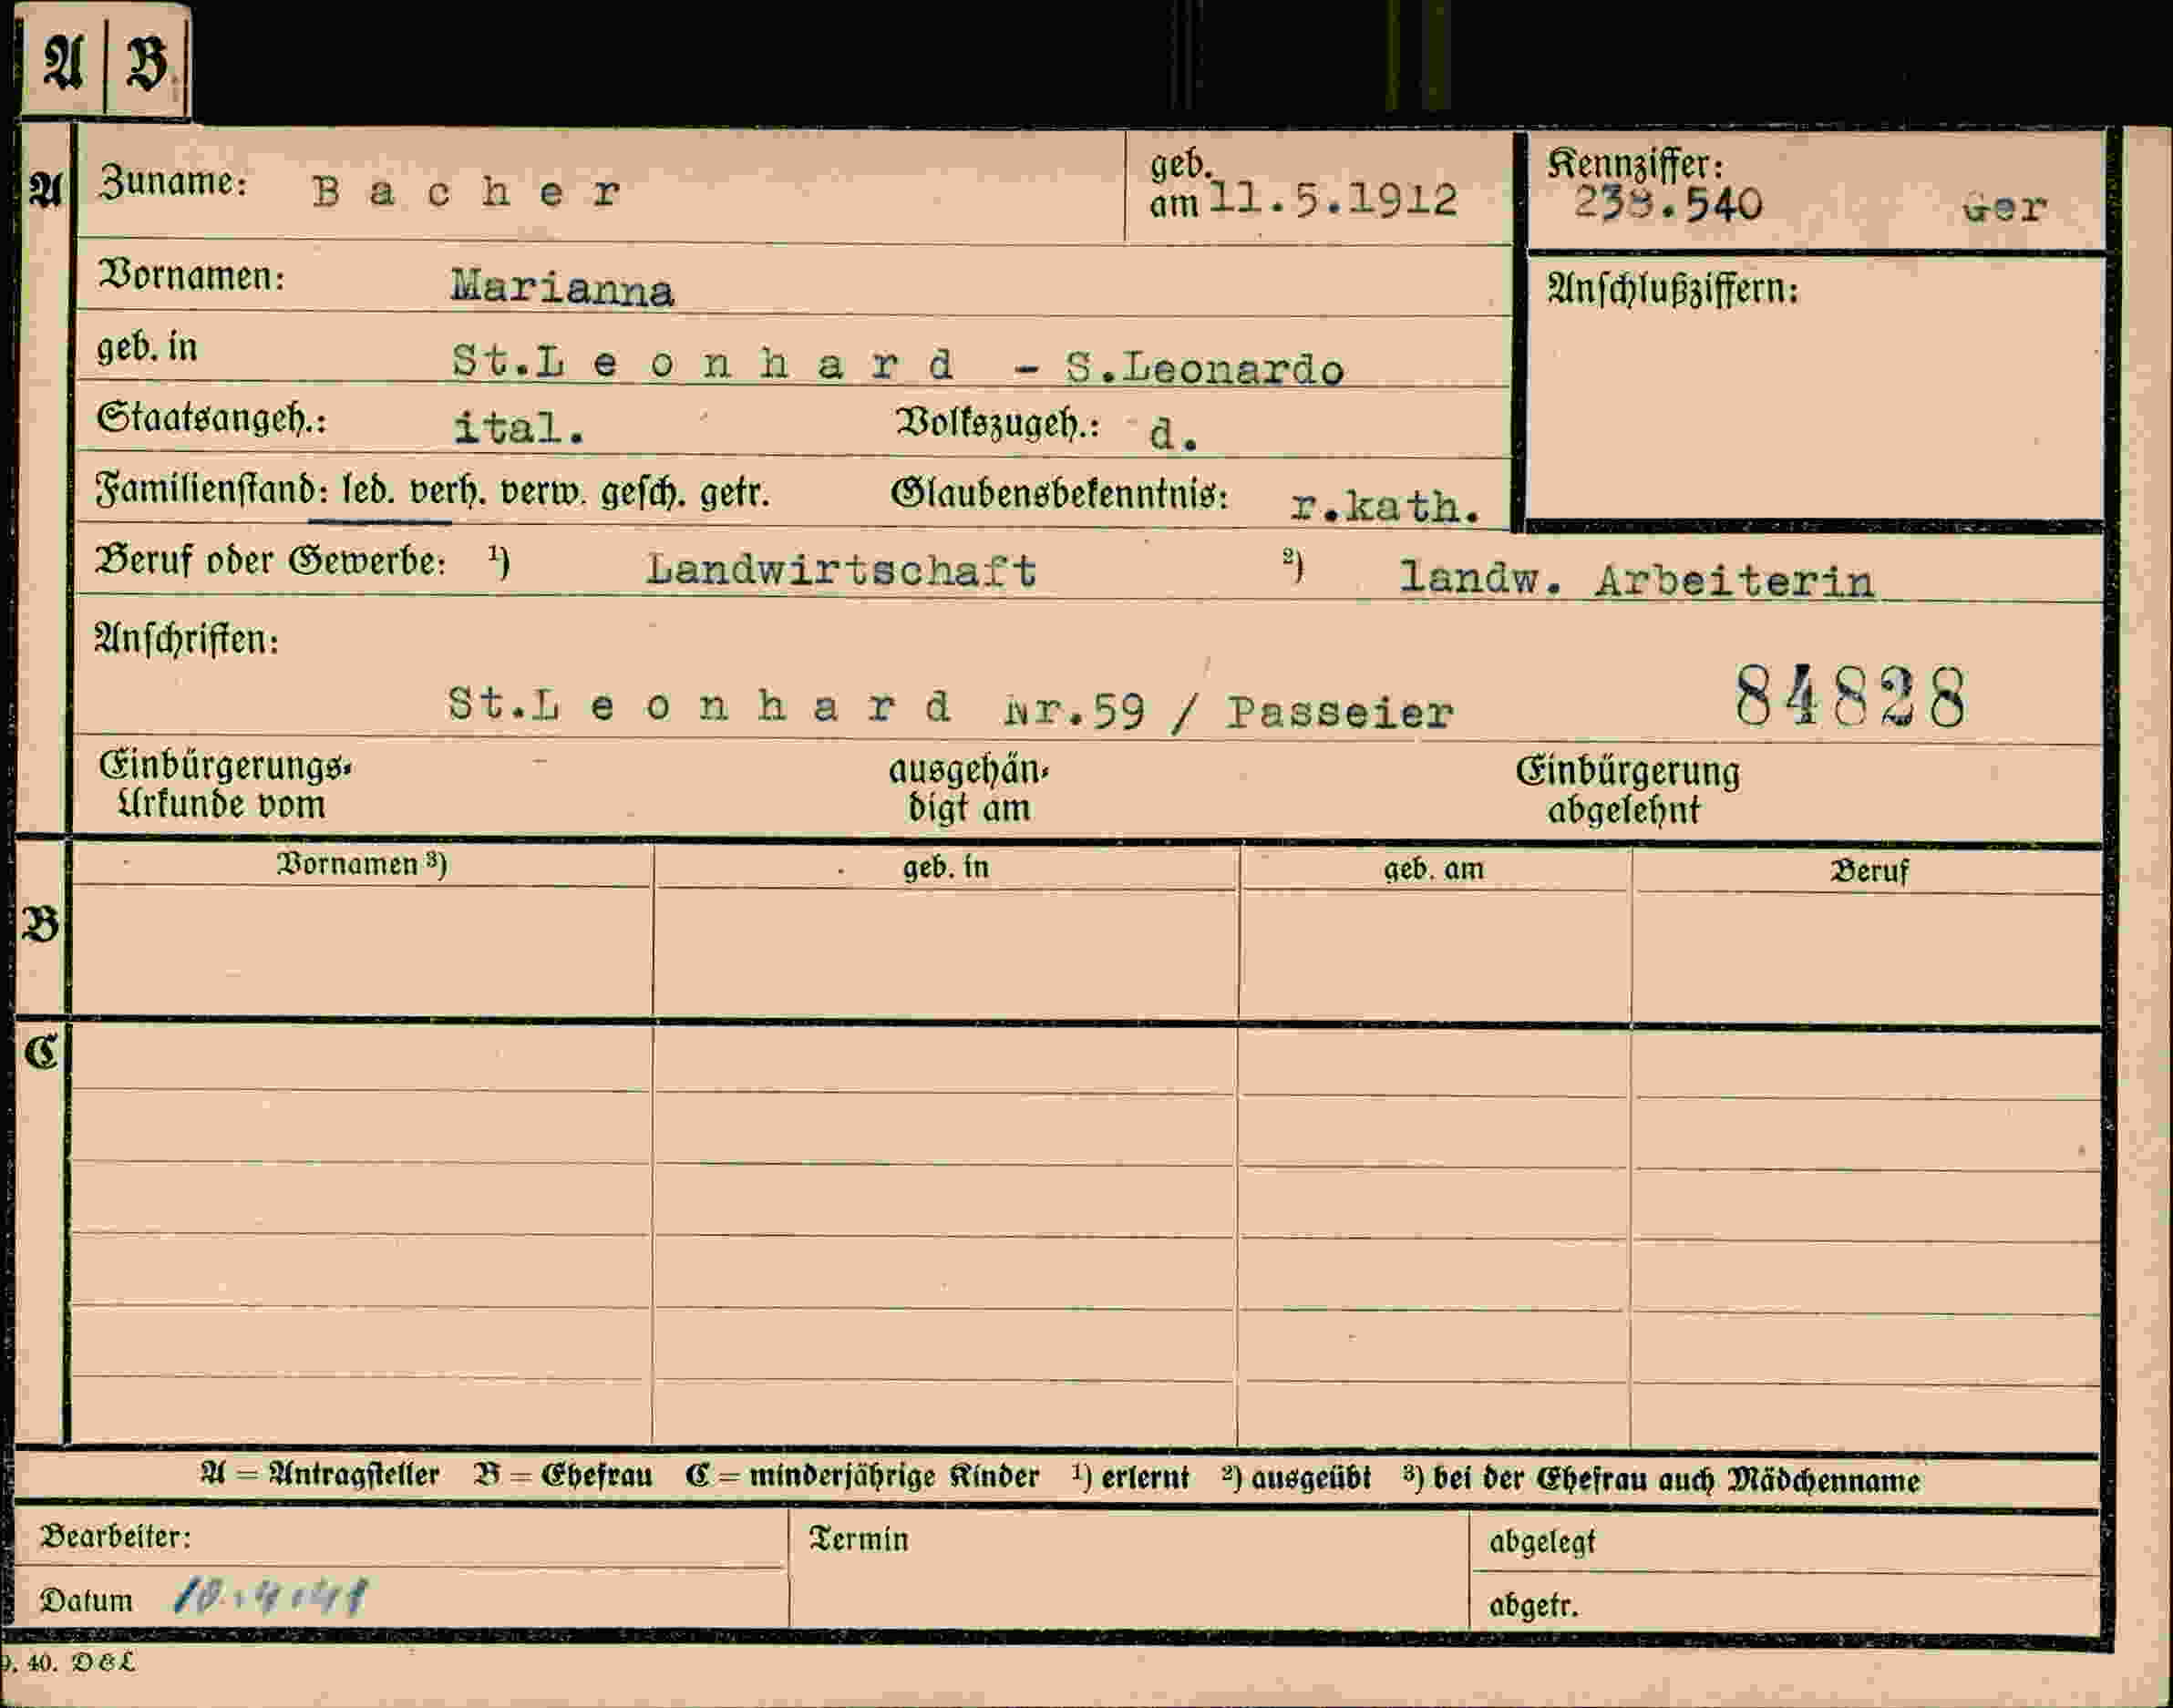 A B
A Zuname: B a c h e r geb. am 11.5.1912 Kennziffer: 238.540 Ger
Vornamen: Marianna Anschlußziffern:
geb. in St.L e o n h a r d - S.Leonardo
Staatsangeh.: ital. Volkszugeh.: d.
Familienstand: led. verh. verw. gesch. getr. Glaubensbekenntnis: r.kath.
Beruf oder Gewerbe: 1) Landwirtschaft 2) landw. Arbeiterin
Anschriften:
St.L e o n h a r d Nr.59 / Passeier 84828
Einbürgerungs- ausgehän- Einbürgerung
Urkunde vom digt am abgelehnt
Vornamen 3) geb. in geb. am Beruf
B
C
A = Antragsteller B = Ehefrau C = minderjährige Kinder 1) erlernt 2) ausgeübt 3) bei der Ehefrau auch Mädchenname
Bearbeiter: Termin abgelegt
Datum 10.4.41 abgetr.
9. 40. D&L